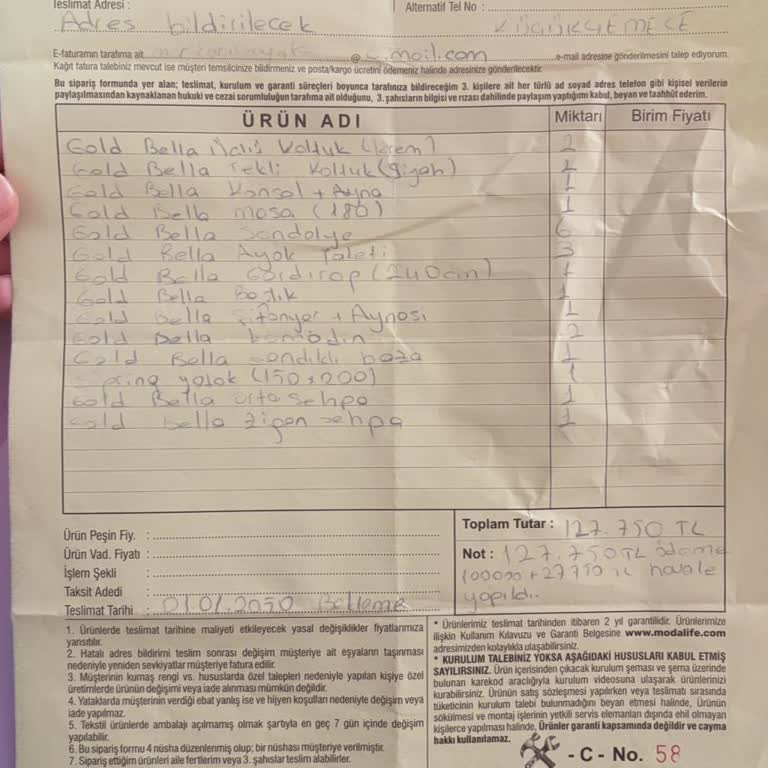 Teslimat Adresi :
Adres bildirilecek
Alternatif Tel No :
KÜÇÜKÇEKMECE
E-faturamın tarafıma ait
@
mail.com
e-mail adresine gönderilmesini talep ediyorum.
Kağıt fatura talebiniz mevcut ise müşteri temsilcinize bildirmeniz ve posta/kargo ücretini ödemeniz halinde adresinize gönderilecektir.
Bu sipariş formunda yer alan; teslimat, kurulum ve garanti süreçleri boyunca tarafınıza bildireceğim 3. kişilere ait her türlü ad soyad adres telefon gibi kişisel verilerin
paylaşılmasından kaynaklanan hukuki ve cezai sorumluluğun tarafıma ait olduğunu, 3. şahısların bilgisi ve rızası dahilinde paylaşım yaptığımı kabul, beyan ve taahhüt ederim.
ÜRÜN ADI Miktarı Birim Fiyatı
Gold Bella Üçlü Koltuk (krem) 2
Gold Bella Tekli Koltuk (Siyah) 1
Gold Bella Konsol + Ayna 1
Gold Bella masa (180) 1
Gold Bella Sandalye 6
Gold Bella Ayak 3
Gold Bella Gardırop (240cm) 1
Gold Bella Başlık 1
Gold Bella Şifonyer + Aynası 1
Gold Bella komodin 2
Gold Bella sandıklı baza 1
Spring yatak (150x200) 1
Gold Bella orta sehpa 1
Gold bella zigon sehpa 1
Ürün Peşin Fiy. :
Ürün Vad. Fiyatı :
İşlem Şekli :
Taksit Adedi :
Teslimat Tarihi : 01.01.2050 Bekleme
Toplam Tutar : 127.750 TL
Not : 127.750TL ödeme
100000+27750 TL havale
yapıldı.
1. Ürünlerde teslimat tarihine maliyeti etkileyecek yasal değişiklikler fiyatlarımıza
yansıtılır.
2. Hatalı adres bildirimi teslim sonrası değişim müşteriye ait eşyaların taşınması
nedeniyle yeniden sevkiyatlar müşteriye fatura edilir.
3. Müşterinin kumaş rengi vs. hususlarda özel talepleri nedeniyle yapılan kişiye özel
üretimlerde ürünün değişimi veya iade alınması mümkün değildir.
4. Yataklarda müşterinin verdiği ebat yanlış ise ve hijyen koşulları nedeniyle değişim veya
iade yapılmaz.
5. Tekstil ürünlerde ambalajı açılmamış olmak şartıyla en geç 7 gün içinde değişim
yapılabilir.
6. Bu sipariş formu 4 nüsha düzenlenmiş olup; bir nüshası müşteriye verilmiştir.
7. Sipariş ettiğim ürünleri aile fertlerim veya 3. şahıslar teslim alabilirler.
* Ürünlerimiz teslimat tarihinden itibaren 2 yıl garantilidir. Ürünlerimize
ilişkin Kullanım Kılavuzu ve Garanti Belgesine www.modalife.com
adresimizden kolaylıkla ulaşabilirsiniz.
* KURULUM TALEBİNİZ YOKSA AŞAĞIDAKİ HUSUSLARI KABUL ETMİŞ
SAYILIRSINIZ. Ürün içerisinden çıkacak kurulum şeması ve şema üzerinde
bulunan karekod aracılığıyla kurulum videosuna ulaşarak ürünlerinizi
kurabilirsiniz. Ürünün satış sözleşmesi yapılırken veya teslimatı sırasında
tüketicinin kurulum talebi bulunmadığını beyan etmesi halinde, Ürünün
sökülmesi ve montaj işlerinin yetkili servis elemanları dışında ehil olmayan
kişilerce yapılması halinde, Ürünler garanti kapsamında değildir ve cayma
hakkı kullanılamaz.
- C - No. 58